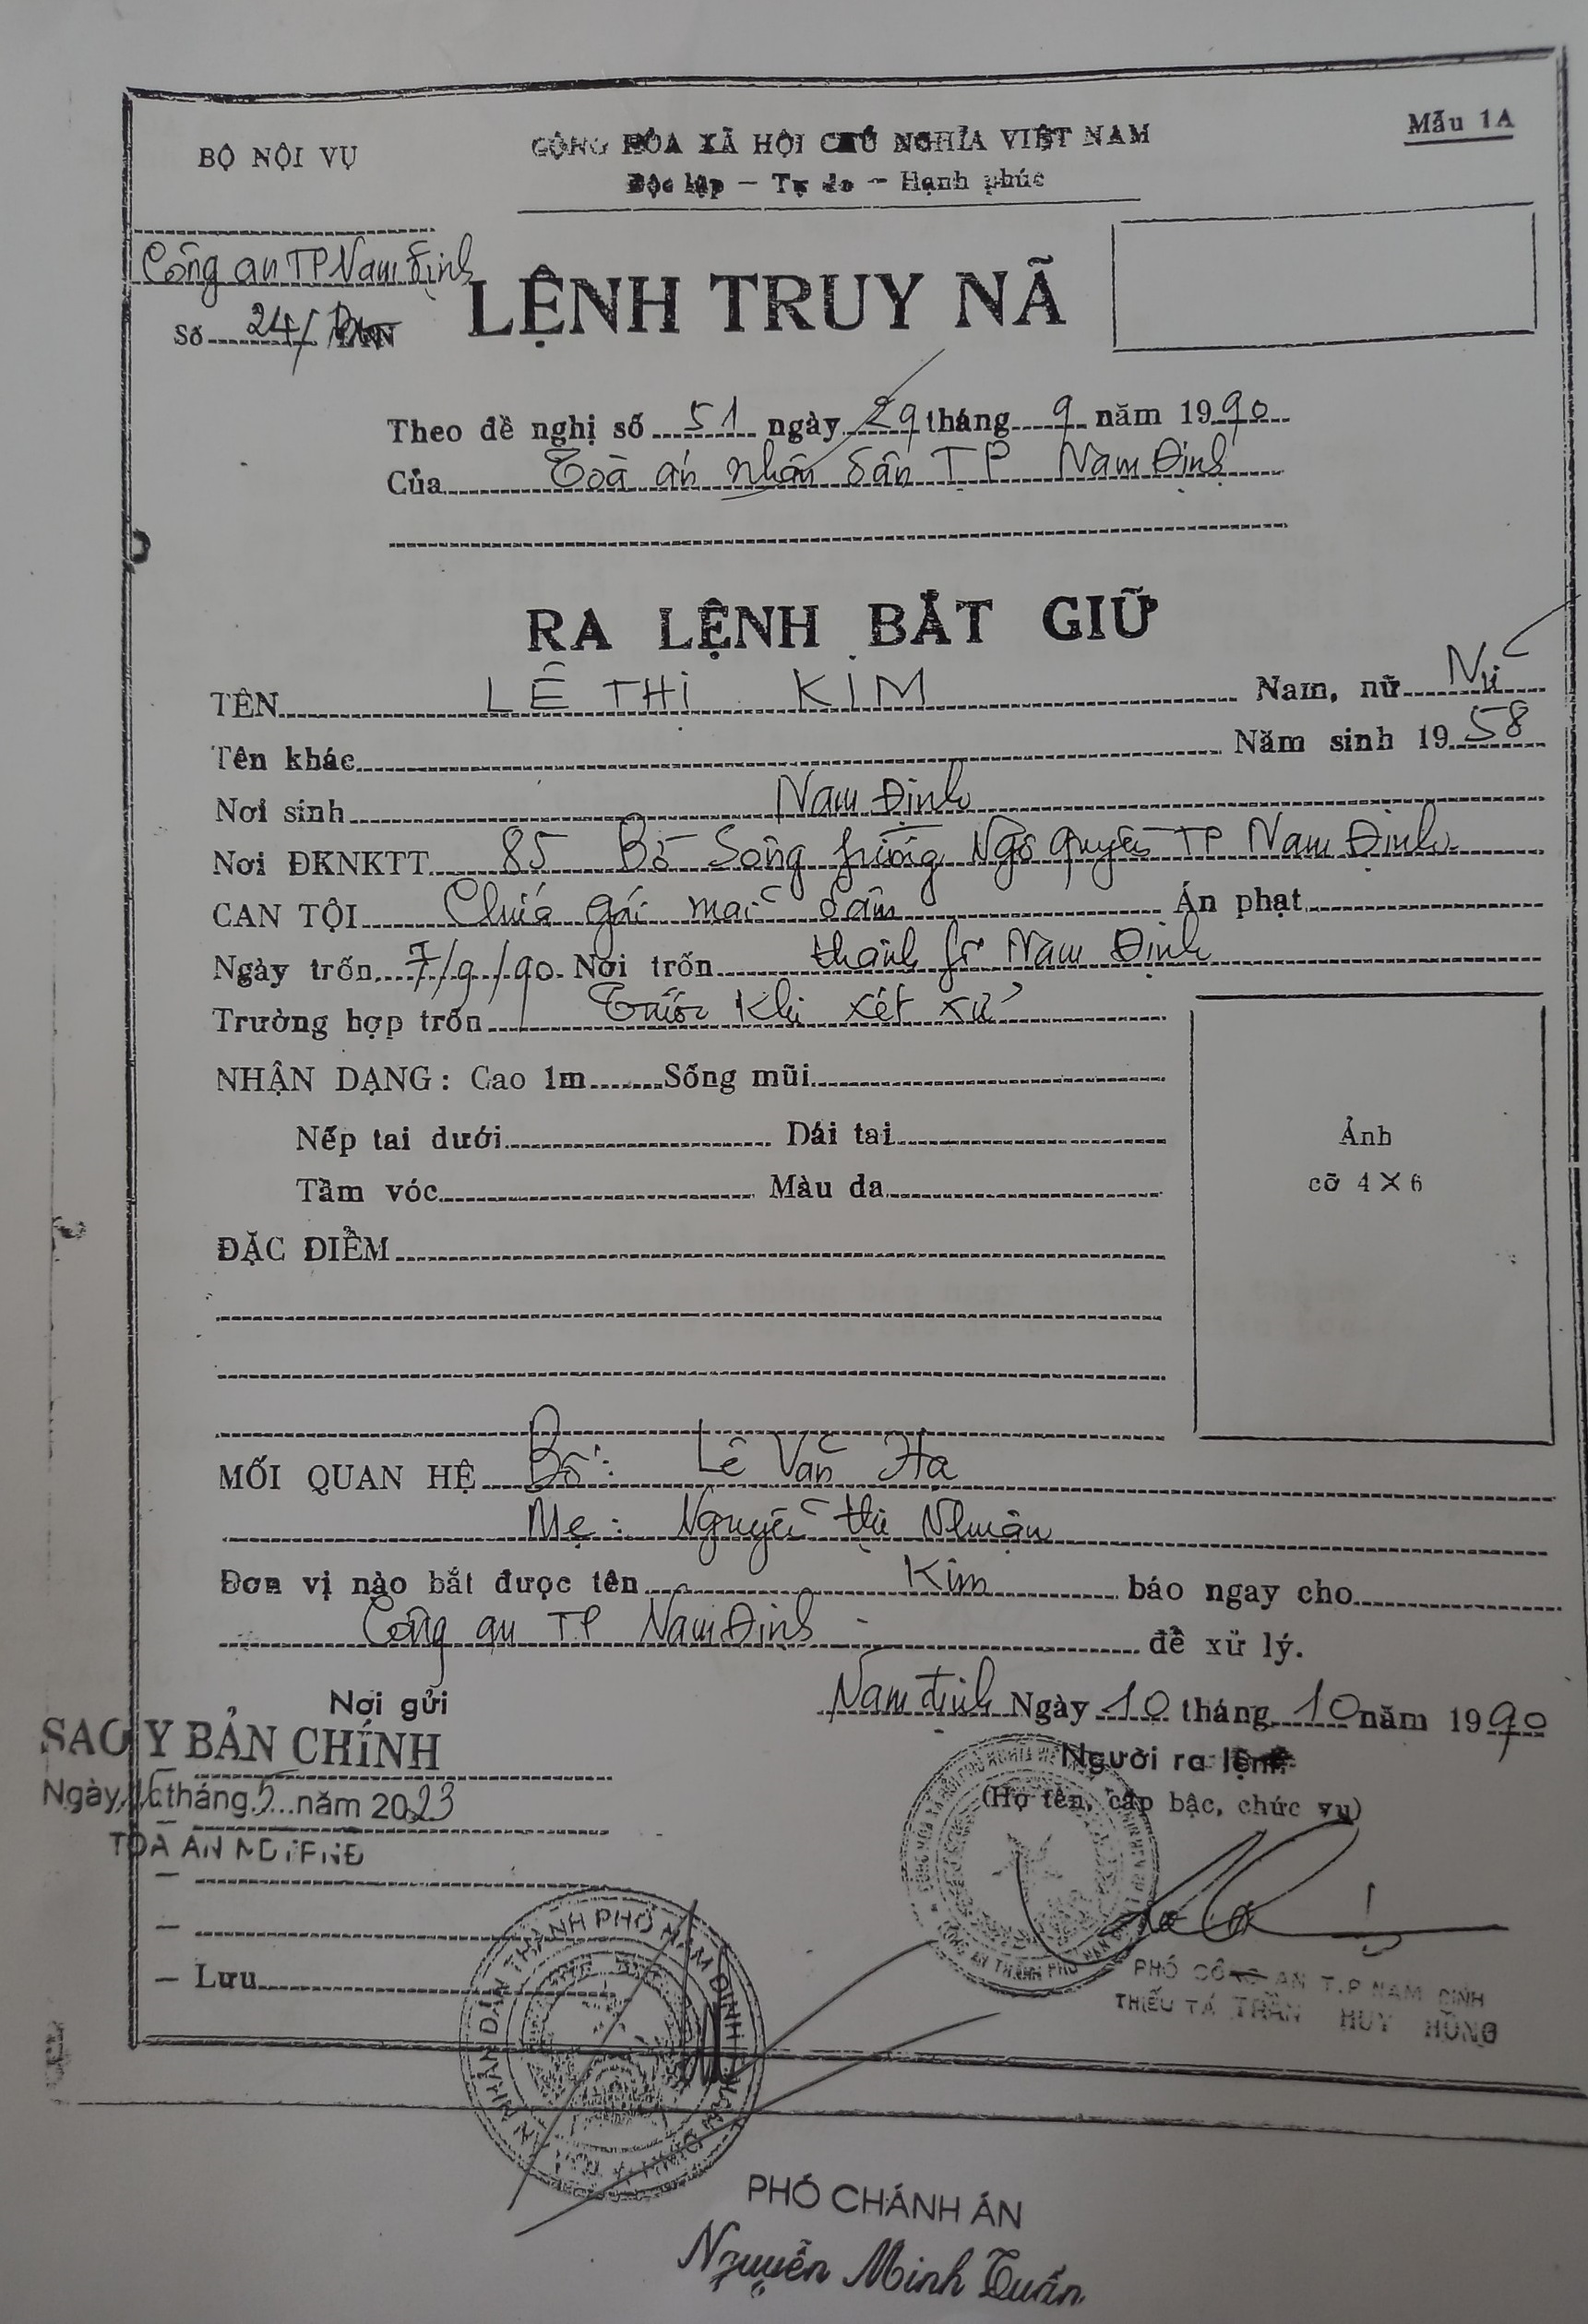 BỘ NỘI VỤ
CỘNG HÒA XÃ HỘI CHỦ NGHĨA VIỆT NAM
Mẫu 1A
Độc lập — Tự do — Hạnh phúc
Công an TP Nam Định
Số 24/
LỆNH TRUY NÃ
Theo đề nghị số 51 ngày 29 tháng 9 năm 1990
Của Toà án nhân dân TP Nam Định
RA LỆNH BẮT GIỮ
TÊN LÊ THỊ KIM Nam, nữ Nữ
Tên khác Năm sinh 1958
Nơi sinh Nam Định
Nơi ĐKNKTT 85 Bờ Sông Ngô Quyền TP Nam Định
CAN TỘI Chứa gái mại dâm Án phạt
Ngày trốn 7/9/90 Nơi trốn thành fố Nam Định
Trường hợp trốn Trước khi xét xử
NHẬN DẠNG: Cao 1m Sống mũi
Nếp tai dưới Dái tai
Tầm vóc Màu da
Ảnh
cỡ 4 X 6
ĐẶC ĐIỂM
MỐI QUAN HỆ Bố: Lê Văn Hạ
Mẹ: Nguyễn thị Nhuận
Đơn vị nào bắt được tên Kim báo ngay cho
Công an TP Nam Định để xử lý.
Nam định Ngày 10 tháng 10 năm 1990
Nơi gửi
SAO Y BẢN CHÍNH
Ngày 16 tháng 5 năm 2023
TOÀ ÁN
Người ra lệnh
(Họ tên, cấp bậc, chức vụ)
— Lưu
PHÓ CÔNG AN T.P NAM ĐỊNH
THIẾU TÁ TRẦN HUY HÙNG
PHÓ CHÁNH ÁN
Nguyễn Minh Tuấn